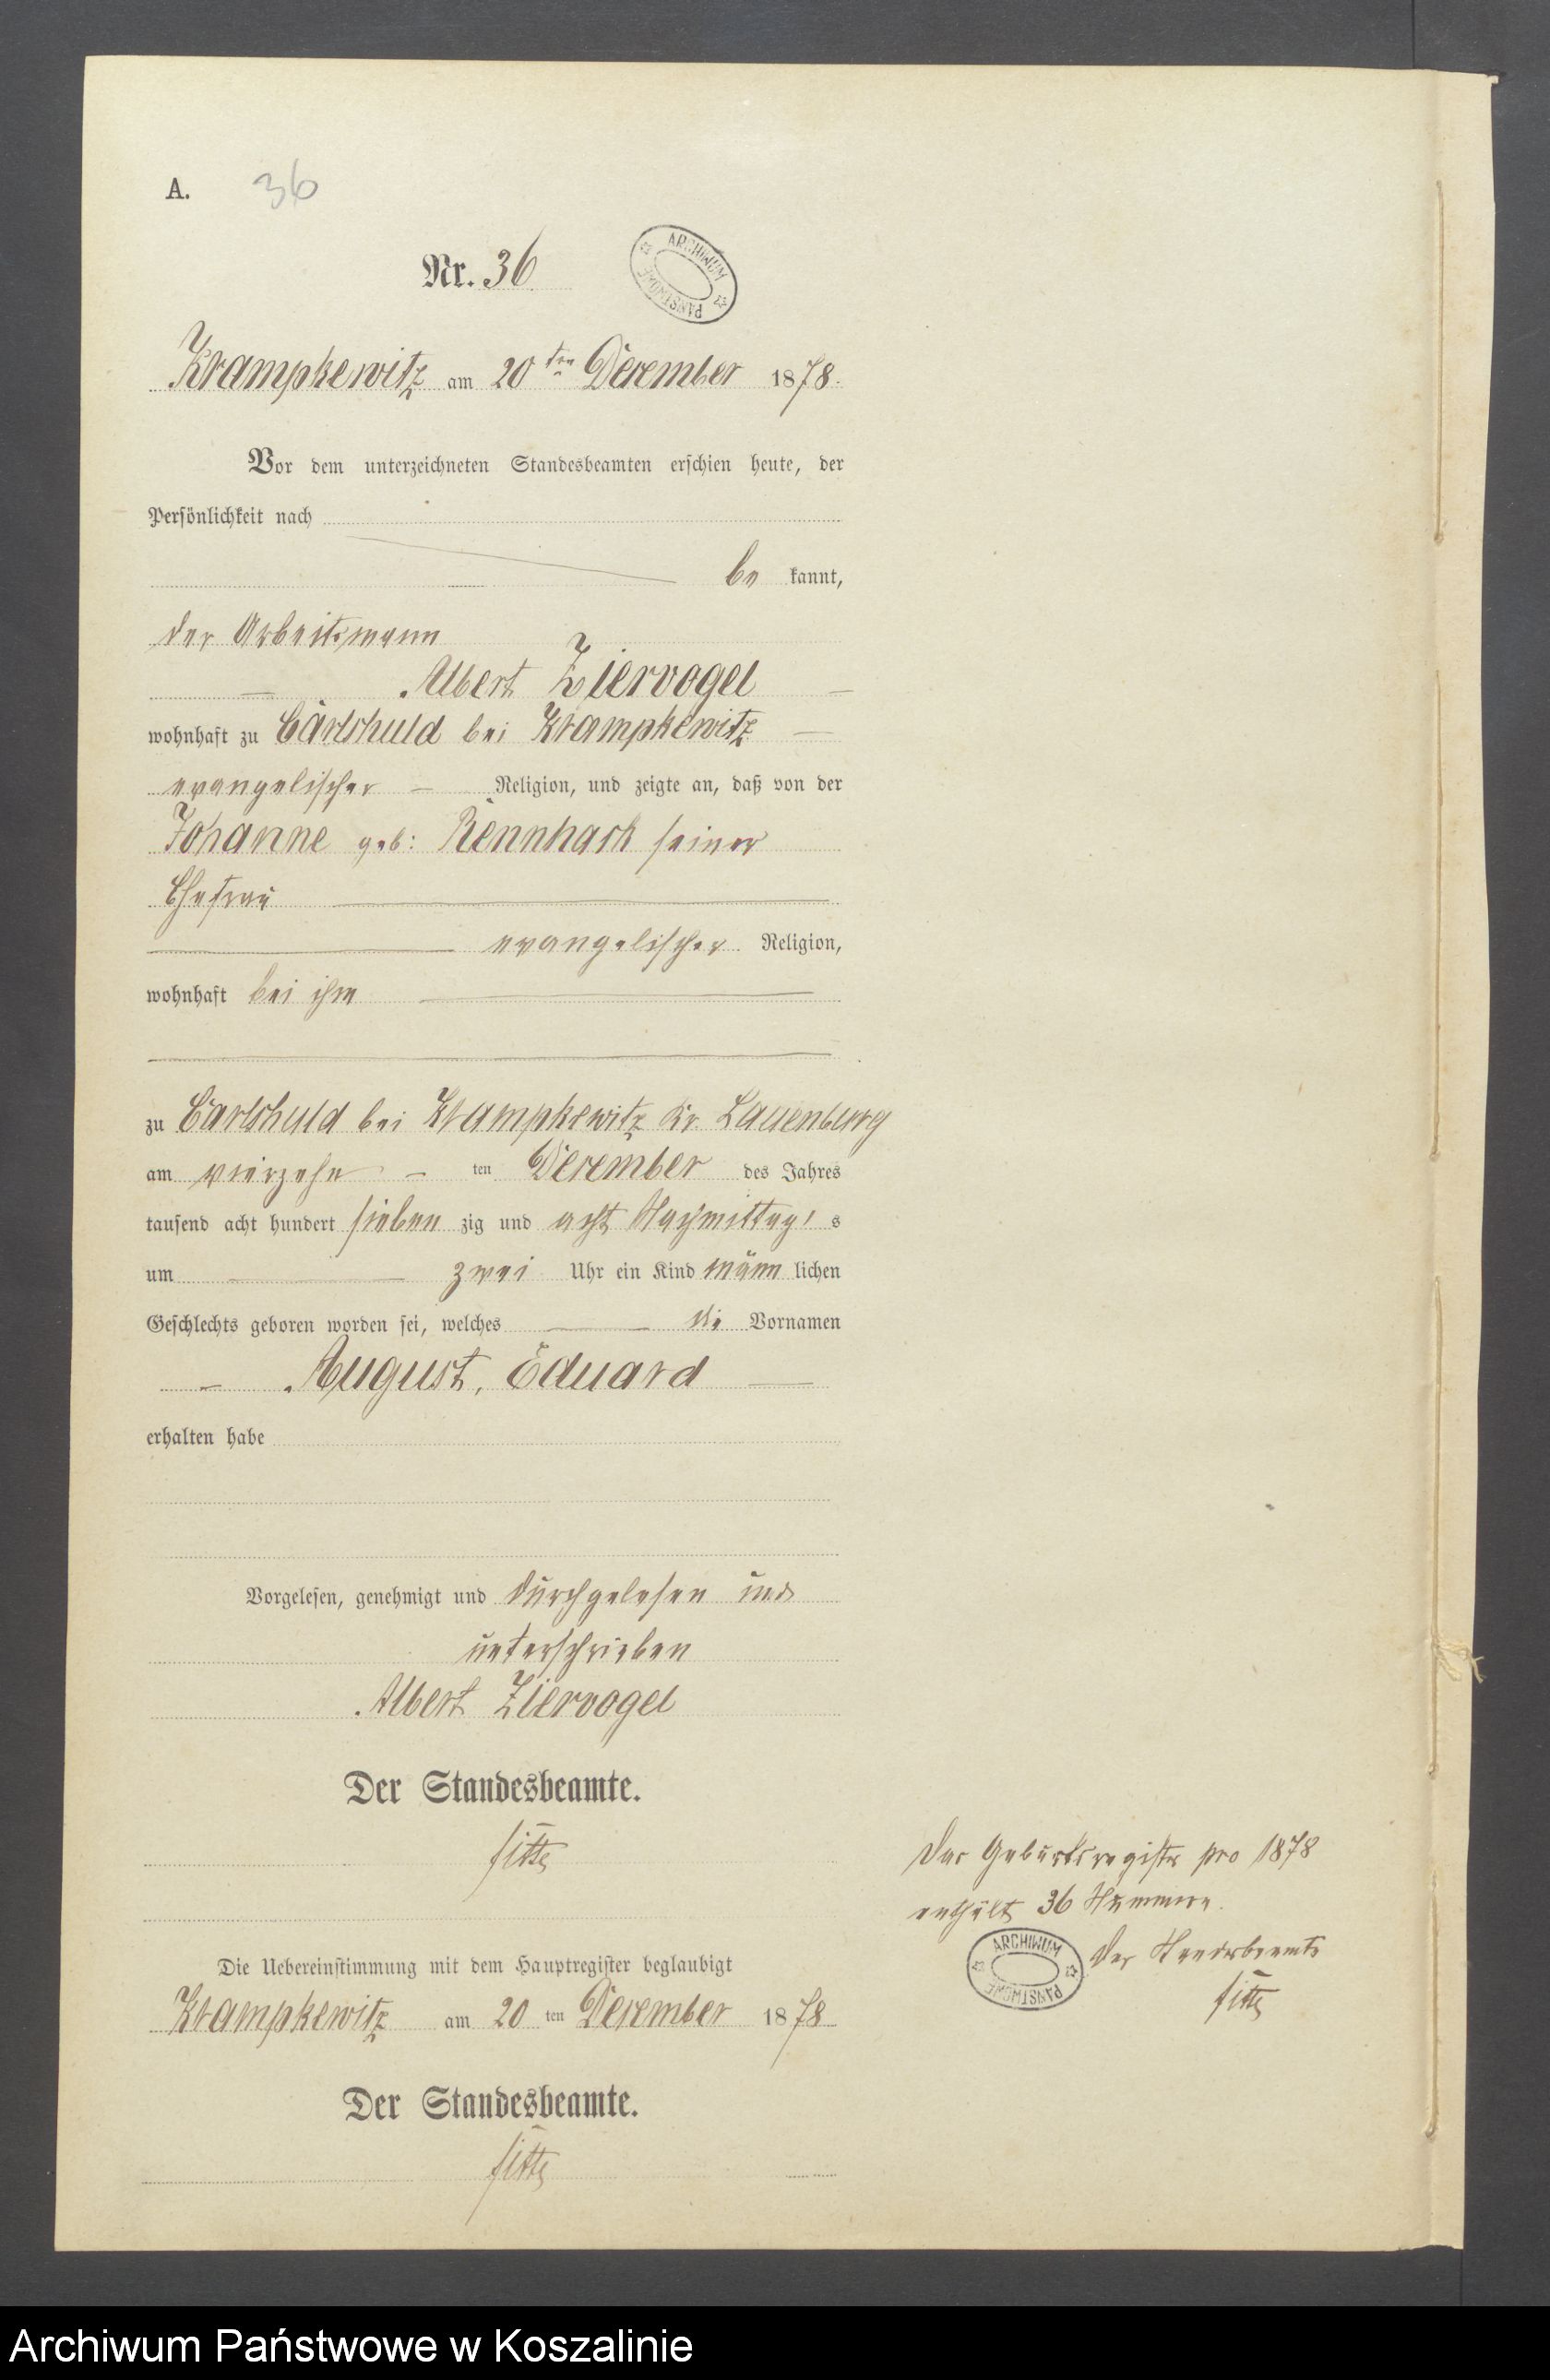 A. 36
Nr. 36
ARCHIWUM PAŃSTWOWE
Krampkewitz am 20 ten December 1878.
Vor dem unterzeichneten Standesbeamten erschien heute, der
Persönlichkeit nach
be kannt,
der Arbeitsmann
Albert Ziervogel
wohnhaft zu Carlshuld bei Krampkewitz
evangelischer Religion, und zeigte an, daß von der
Johanne geb: seiner
Ehefrau
evangelischer Religion,
wohnhaft bei ihm
zu Carlshuld bei Krampkewitz Kr. Lauenburg
am vierzehn ten December des Jahres
tausend acht hundert sieben zig und acht Nachmittag s
um zwei Uhr ein Kind männ lichen
Geschlechts geboren worden sei, welches die Vornamen
August, Eduard
erhalten habe
Vorgelesen, genehmigt und durchgelesen und
unterschrieben
Albert Ziervogel
Der Standesbeamte.
Die Uebereinstimmung mit dem Hauptregister beglaubigt
Krampkewitz am 20 ten December 1878
Der Standesbeamte.
Das Geburtsregister pro 1878
enthält 36 Nummern.
Der Standesbeamte
ARCHIWUM PAŃSTWOWE
Archiwum Państwowe w Koszalinie